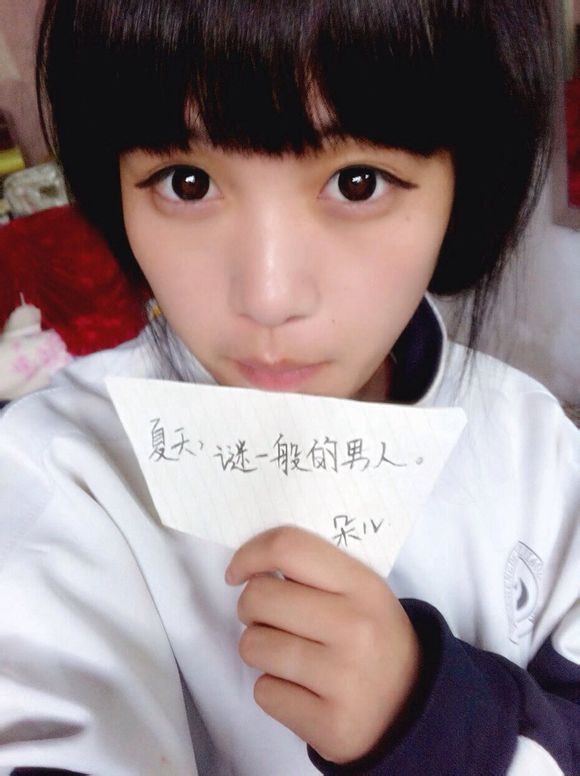 夏天，谜一般的男人。
朵儿